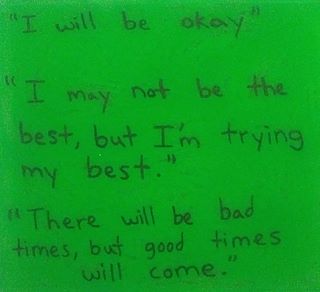 "I will be okay"
"I may not be the
best, but I'm trying
my best."
"There will be bad
times, but good times
will come."